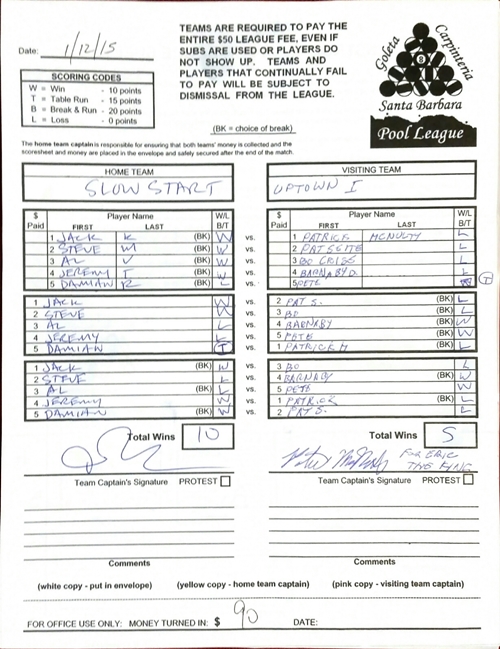 Date: 1/12/15
TEAMS ARE REQUIRED TO PAY THE
ENTIRE $50 LEAGUE FEE, EVEN IF
SUBS ARE USED OR PLAYERS DO
NOT SHOW UP. TEAMS AND
PLAYERS THAT CONTINUALLY FAIL
TO PAY WILL BE SUBJECT TO
DISMISSAL FROM THE LEAGUE.
Goleta Carpinteria
8
Santa Barbara
Pool League
SCORING CODES
W = Win - 10 points
T = Table Run - 15 points
B = Break & Run - 20 points
L = Loss - 0 points
(BK = choice of break)
The home team captain is responsible for ensuring that both teams' money is collected and the
scoresheet and money are placed in the envelope and safely secured after the end of the match.
HOME TEAM VISITING TEAM
SLOW START UPTOWN I
$ Player Name W/L $ Player Name W/L
Paid FIRST LAST B/T Paid FIRST LAST B/T
1 JACK K (BK) W vs. 1 PATRICK MCNULTY L
2 STEVE M (BK) W vs. 2 PAT L
3 AL V (BK) W vs. 3 BO CRISS L
4 JEREMY T (BK) W vs. 4 BARNABY D. L
5 DAMIAN R (BK) L vs. 5 PETE T
1 JACK W vs. 2 PAT S. (BK) L
2 STEVE W vs. 3 BO (BK) L
3 AL L vs. 4 BARNABY (BK) W
4 JEREMY L vs. 5 PETE (BK) W
5 DAMIAN T vs. 1 PATRICK M (BK) L
1 JACK (BK) W vs. 3 BO L
2 STEVE L vs. 4 BARNABY (BK) W
3 AL (BK) L vs. 5 PETE W
4 JEREMY W vs. 1 PATRICK (BK) L
5 DAMIAN (BK) W vs. 2 PAT S. L
Total Wins 10 Total Wins 5
FOR ERIC
THE KING
Team Captain's Signature PROTEST Team Captain's Signature PROTEST
Comments Comments
(white copy - put in envelope) (yellow copy - home team captain) (pink copy - visiting team captain)
FOR OFFICE USE ONLY: MONEY TURNED IN: $ 90 DATE: